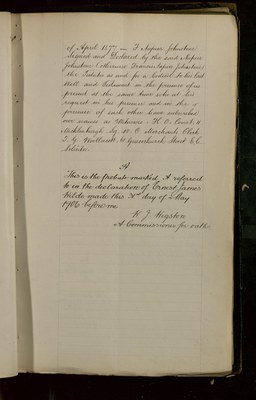 of April 1877 — F Napier Johnstone
Signed and Declared by the said Napier
Johnstone (otherwise Francis Napier Johnstone)
the Testator as and for a Codicil to his last
Will and Testament in the presence of us
present at the same time who at his
request in his presence and in the
presence of each other have subscribed
our names as Witnesses — H. C.
by W. C. Clerk
2 G. 60 Gracechurch Street E.C.
Solicitor.
A
This is the probate marked A referred
to in the declaration of Ernest James
Wilde made this 3rd day of May
1906 before me
A Commissioner for oaths